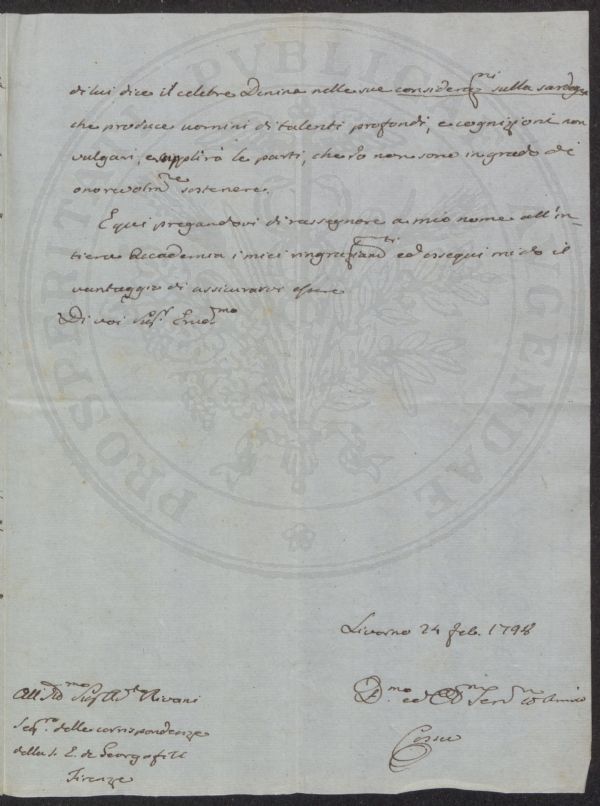 di lui dice il celebre Denina nelle sue consideraz.ni sulla sardeg.a
che produce uomini di talenti profondi, e cognizioni non
vulgari, e supplirà le parti, che io non sono in grado di
onorevolm.te sostenere.
E qui pregandovi di rassegnare a mio nome all'in-
tiera Accademia i miei ringraziam.ti ed ossequi mi do il
vantaggio di assicurarvi essere
Di voi Sig.r
Livorno 24 feb. 1798
Dev.mo ed Obb.mo Serv.re ed Amico
Cossu
All' Sig.r Rivani
Seg.rio delle corrispondenze
della S. E. de Georgofili
Firenze
PROSPERITATI PUBLICAE AUGENDAE